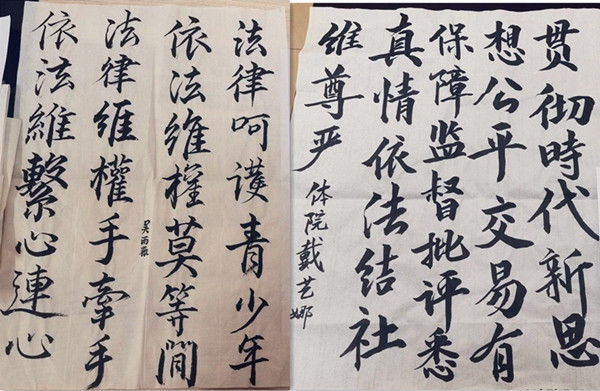 法律呵護青少年
依法維權莫等閒
法律維權手牽手
依法維繫心連心
贯彻時代新思
想公平交易有
保障监督批评悉
真情依法结社
维尊严
体院戴艺娜